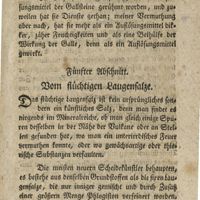 fungsmittel der Gallsteine gerühmt worden, und zu-
weilen hat sie Dienste gethan; meiner Vermuthung
aber nach, hat sie mehr als ein Auflösungsmittel dik-
ker, zäher Feuchtigkeiten und als eine Beihülfe der
Wirkung der Galle, denn als ein Auflösungsmittel
gewirkt.
Fünfter Abschnitt.
Vom flüchtigen Laugensalze.
Das flüchtige Laugensalz ist kein ursprüngliches son-
dern ein künstliches Salz, denn man findet es
nirgends im Mineralreiche, ob man gleich einige Spu-
ren desselben in der Nähe der Vulkane oder an Stel-
len antrifft, wo
gekommen, oder wo gewächsartige oder thie-
rische Substanzen verfaulen.
Die meisten neuern Scheidekünstler behaupten,
es bestehe aus denselben Grundstoffen als die feuerbe-
ständigen Laugen-
salze, die nur inniger gemischt und durch Zusatz
einer größern Menge Phlogiston verfeinert worden